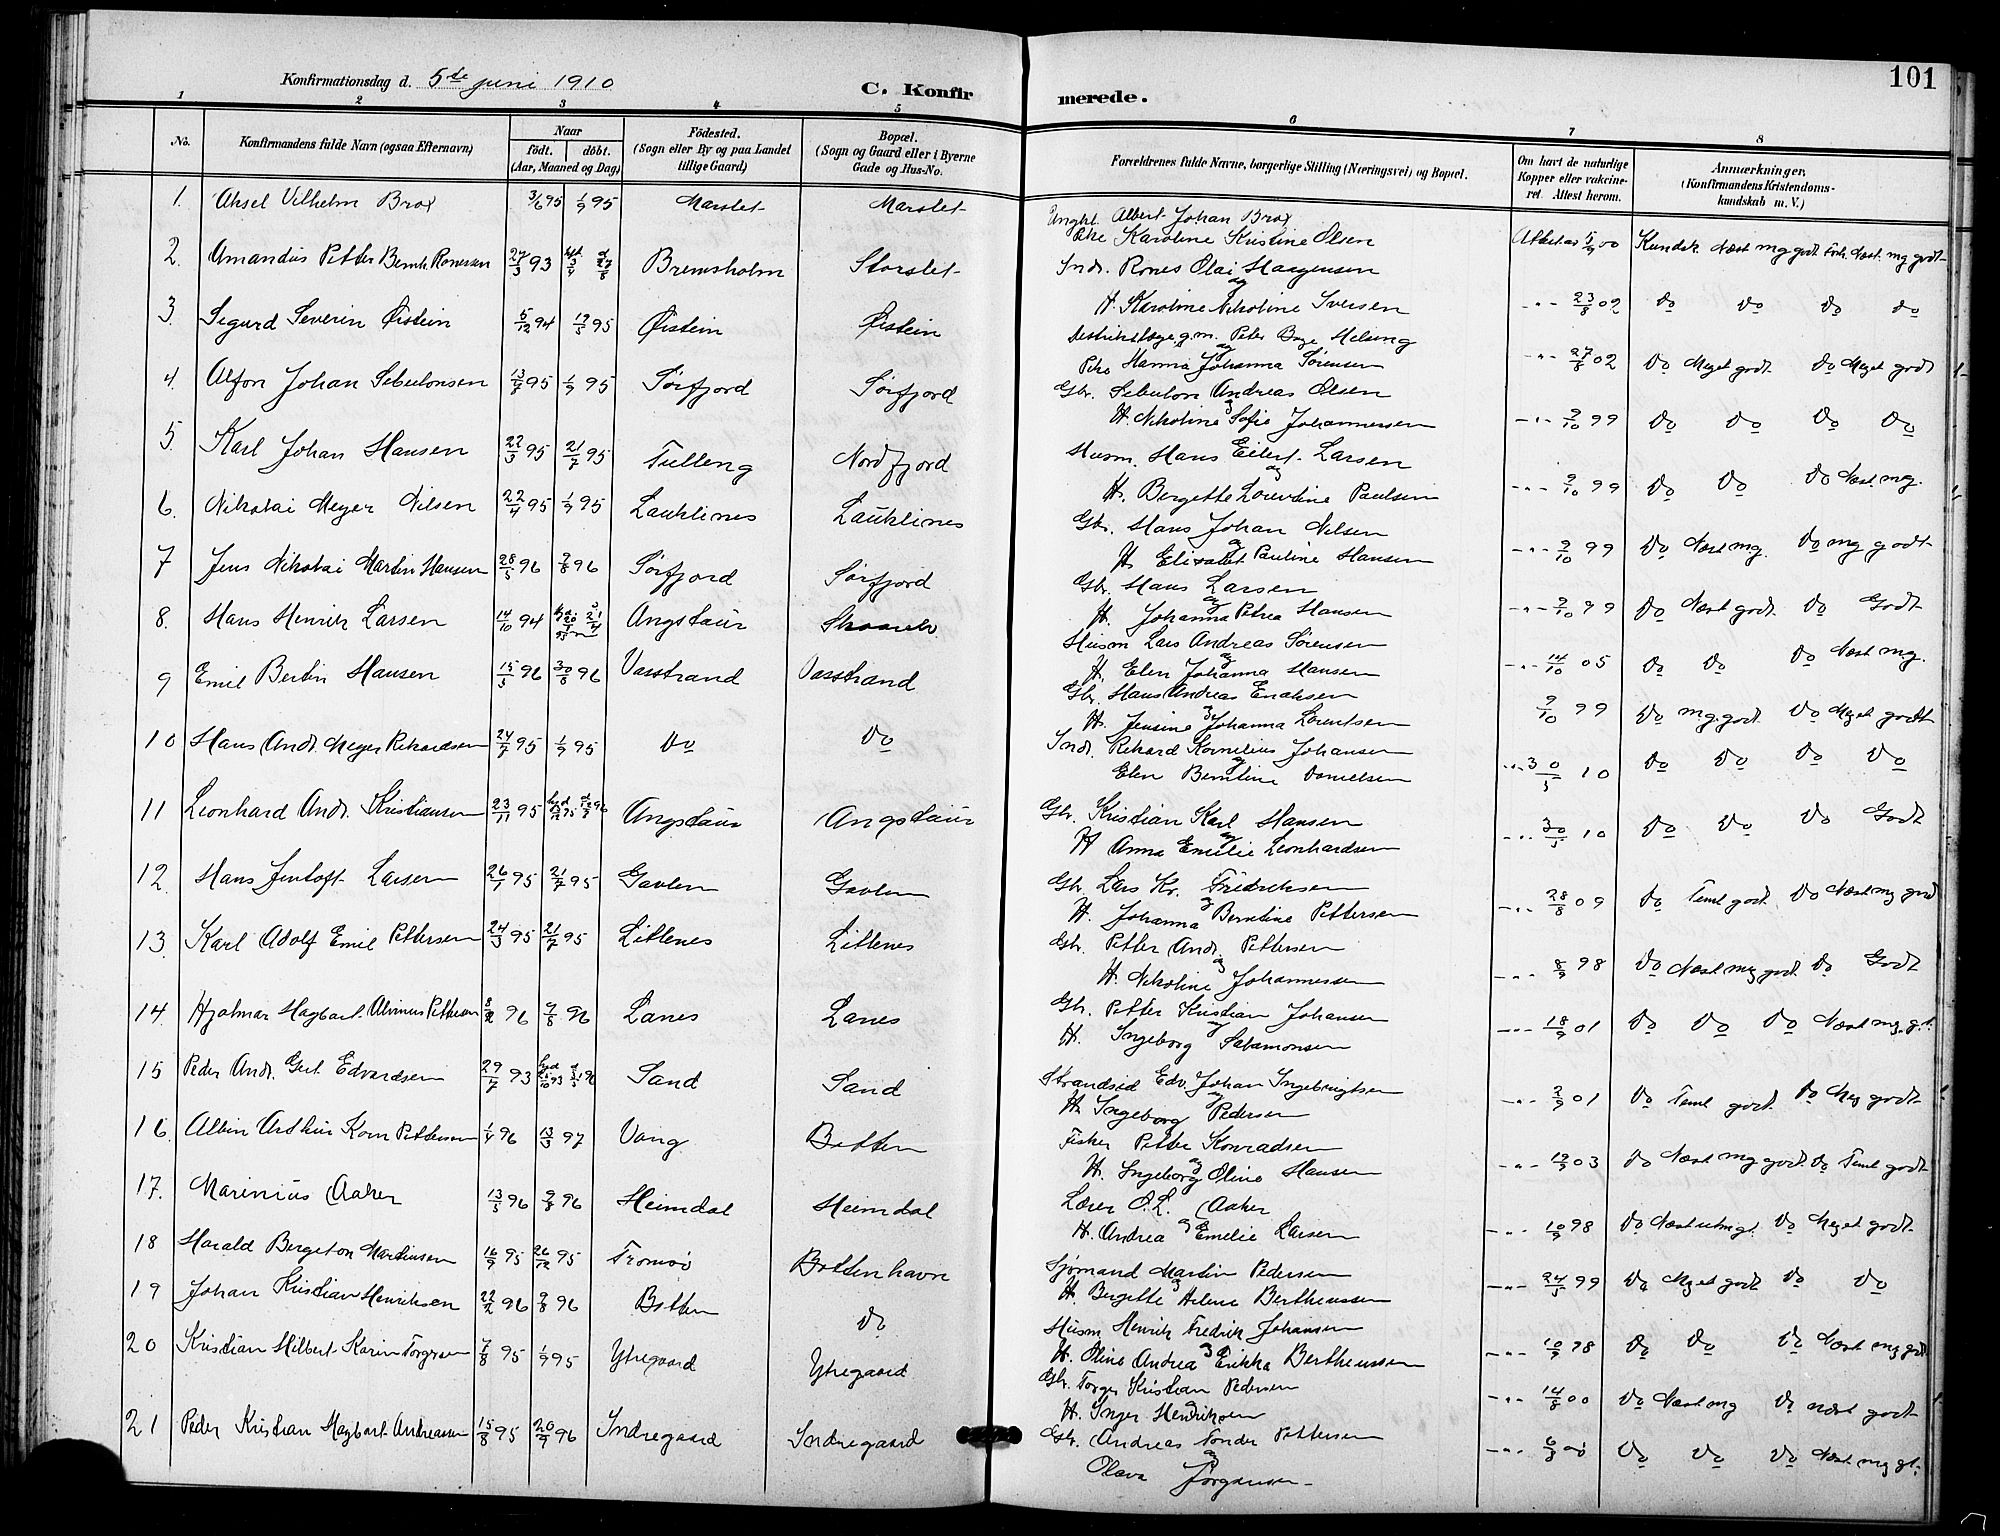 101
Konfirmationsdag d. 5te juni 1910
C. Konfirmerede.
1 2 3 4 5 6 7 8
No.
Konfirmandens fulde Navn (ogsaa Efternavn)
Naar
födt. döbt.
(Aar, Maaned og Dag)
Födested.
(Sogn eller By og paa Landet
tillige Gaard)
Bopæl.
(Sogn og Gaard eller i Byerne
Gade og Hus-No.
Forældrenes fulde Navne, borgerlige Stilling (Næringsvei) og Bopæl.
Om havt de naturlige
Kopper eller vakcine-
ret. Attest herom.
Anmærkninger,
(Konfirmandens Kristendoms-
kundskab m. V.)
1. Aksel Vilhelm Brox 3/6 95 1/9 95 Marslet Marslet
Ungkl. Albert Johan Brox
Pike Karoline Kristine Olsen
Kundsk. Næst mg godt Næst mg godt
2. Amandus Petter Bernh. Ronesen 27/3 93 Bremsholm Storslet
Indr. Rones Olai Haagensen
og
H. Karoline Nikoline Iversen 23/8 02 Do Do Do Do
3. Sigurd Severin Øistein 5/12 94 19/5 95 Øistein Øistein
Distriktslæge g.m. Peter Helsing
og
Pike Hanna Johanna Sørensen 27/8 02 Do Meget godt Do Meget godt
4. Alfon Johan Sebulonsen 13/8 95 1/9 95 Sørfjord Sørfjord
Gbr. Sebulon Andreas Olsen
og
H. Nikoline Sofie Johannessen 9/10 99 Do Do Do Do
5. Karl Johan Hansen 22/3 95 21/7 95 Tulleng Nordfjord
Husm. Hans Eilert Larsen
og
H. Bergette Lorentine Paulsen 9/10 99 Do Do Do Næst mg.
6. Nikolai Meyer Nilsen 22/4 95 1/9 95 Lauklines Lauklines
Gbr. Hans Johan Nilsen
og
H. Elisabet Pauline Hansen 9/10 99 Do Næst mg. Do mg godt
7 Jens Nikolai Martin Hansen 28/5 96 9/8 96 Sørfjord Sørfjord
Gbr. Hans Larsen
og
H. Johanna Petrea Hansen 9/10 99 Do Næst godt. Do Godt
8. Hans Henrik Larsen 14/10 94 Angstaur
Husm Lars Andreas Sørensen
og
H. Elen Johanna Hansen 14/10 05 Do Do Do Næst mg.
9 Emil Bertin Hansen 15/5 96 30/8 96 Vasstrand Vasstrand
Gbr. Hans Andreas Enoksen
og
H. Jensine Johanna Lorentsen 9/10 99 Do mg. godt Do Meget godt
10 Hans Andr. Meyer Rikardsen 24/7 95 1/9 95 Do Do
Indr. Rikard Kornelius Johansen
og
Elen Berntine Danielsen 30/5 10 Do Do Do Do
11 Leonhard Andr. Kristiansen 23/11 95 Angstaur Angstaur
Gbr. Kristian Karl Hansen
og
H Anna Emilie Leonhardsen 30/5 10 Do Do Do Godt
12. Hans Jentoft Larsen 26/1 95 21/7 95 Gavlen Gavlen
Gbr. Lars Kr. Fredriksen
og
H. Johanna Berntine Pettersen 28/8 09 Do Teml godt Do Næst mg god
13. Karl Adolf Emil Pettersen 24/3 95 21/7 95 Litlenes Litlenes
Gbr. Petter Andr. Pettersen
og
H. Nikoline Johannessen 8/9 98 Do Næst mg godt. Do Godt
14. Hjalmar Hagbart Alvinus Pettersen 8/2 96 9/8 96 Lanes Lanes
Gbr. Petter Kristian Johansen
og
H. Ingeborg Salamonsen 18/9 01 Do Do Do Næst mg. gt.
15 Peder Andr. Gert Edvardsen 29/7 93 Sand Sand
Strandsid Edv. Johan Ingebrigtsen
og
H. Ingeborg Pedersen 2/9 01 Do Teml godt. Do Meg godt
16. Albin Arthur Korn Pettersen 1/4 96 13/3 97 Vang Botten
Fisker Petter Konradsen
og
H. Ingeborg Oline Hansen 19/9 03 Do Næst mg godt. Do Teml godt
17. Marinius Aaker 13/5 96 9/8 96 Heimdal Heimdal
Lærer O. L. Aaker
og
H. Andrea Emelie Larsen 10/9 98 Do Do Meget godt
18 Harald Bergeton Martinsen 16/9 95 26/12 95 Tromsö Bottenhavn
Sjömand Martin Pedersen
og
H. Bergitte Helene Bertheussen 24/5 99 Do Meget godt Do Do
19 Johan Kristian Henriksen 22/2 96 9/8 96 Botten Do
Husm Henrik Fredrik Johansen
og
H. Oline Andrea Erikka Bertheussen 10/9 98 Do Do Do Næst mg godt
20 Kristian Hilbert Karin Torgersen 7/8 95 1/9 95 Ytregaard Ytregaard
Gbr. Torger Kristian Pedersen
og
H. Inger Henriksen 14/8 00 Do Næst mg Do næst godt
21 Peder Kristian Hagbart Andreassen 15/8 95 20/7 96 Indregaard Indregaard
Gbr. Andreas Tonder Pettersen
og
Olava Jørgensen Do Do Do Næst mg gt.